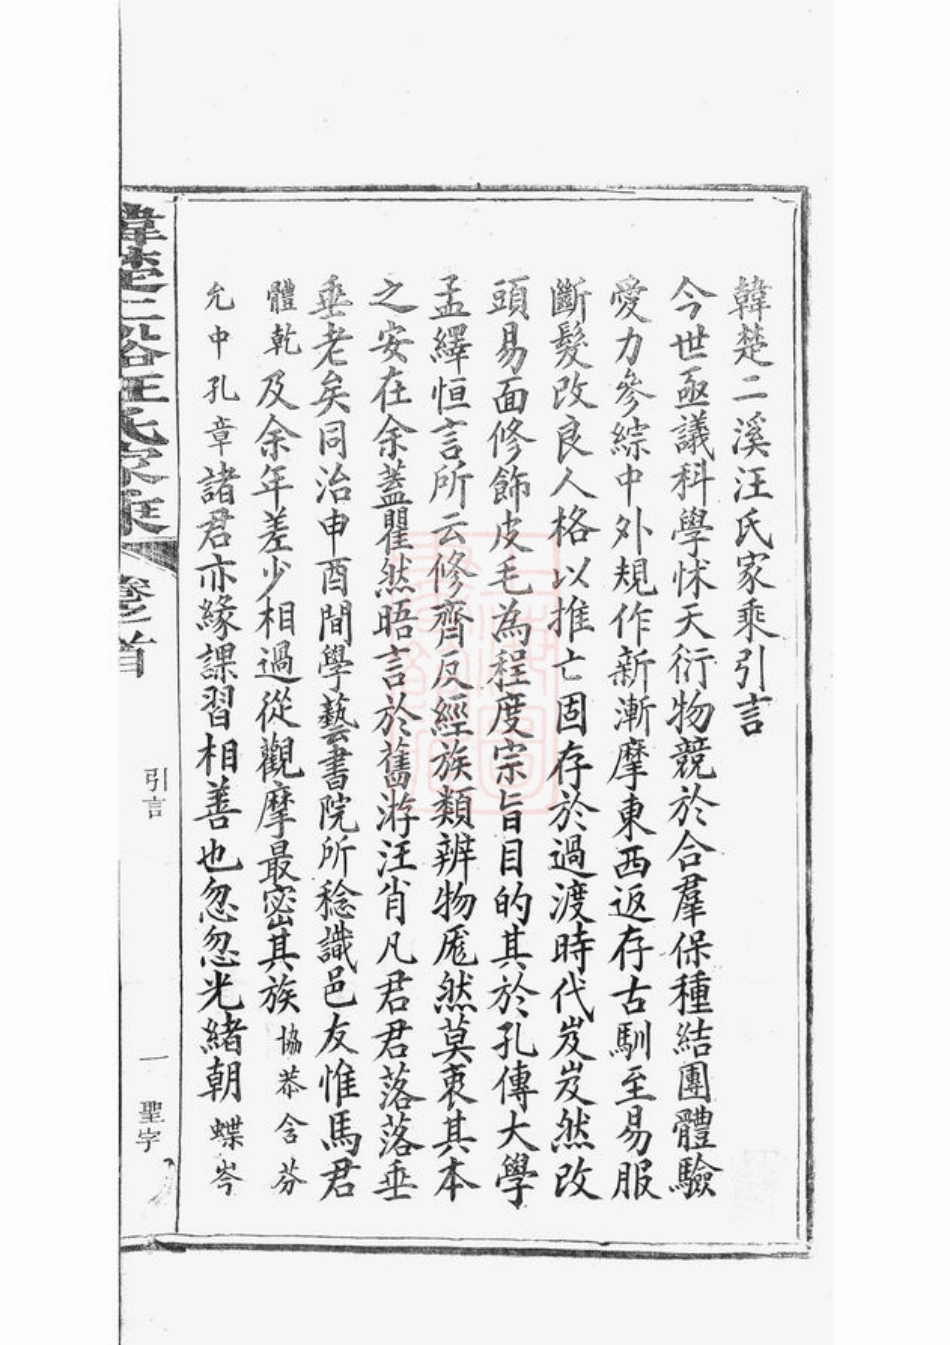 韓楚二溪汪氏家乘引言
今世亟議科學怵天衍物競於合羣保種結團體驗
愛力參綜中外規作新漸摩東西返存古馴至易服
斷髮改良人格以推亡固存於過渡時代岌岌然改
頭易面修飾皮毛為程度宗旨目的其於孔傳大學
孟繹恒言所云修齊反經族類辨物厖然莫衷其本
之安在余蓋瞿然晤言於舊游汪肖凡君君落落垂
垂老矣同治申酉間學藝書院所稔識邑友惟馬君
體乾及余年差少相過從觀摩最密其族協恭含芬
允中孔章諸君亦緣課習相善也忽忽光緒朝蝶岑
韓楚二谿汪氏家乘
卷之首
引言
一
聖字